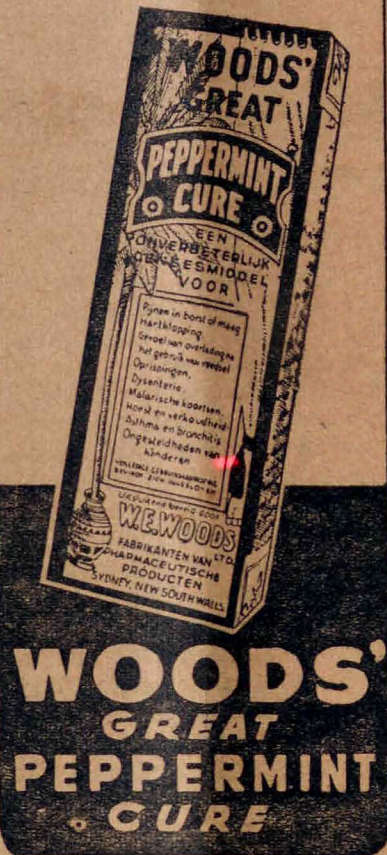 WOODS'
GREAT
PEPPERMINT
CURE
EEN
ONVERBETERLIJK
GENEESMIDDEL
VOOR
Pijnen in borst of maag
Hartklopping.
Gevoel van overlading na
het gebruik van voedsel
Oprispingen,
Dysenterie.
Malarische koortsen.
Hoest en verkoudheid.
Asthma en bronchitis
Ongesteldheden van
kinderen
VOLLEDIGE GEBRUIKSAANWIJZING
Uitsluitend bereid door
W.E.WOODS
LTD.
FABRIKANTEN VAN
PHARMACEUTISCHE
PRODUCTEN
SYDNEY, NEW SOUTH WALLS
WOODS'
GREAT
PEPPERMINT
CURE